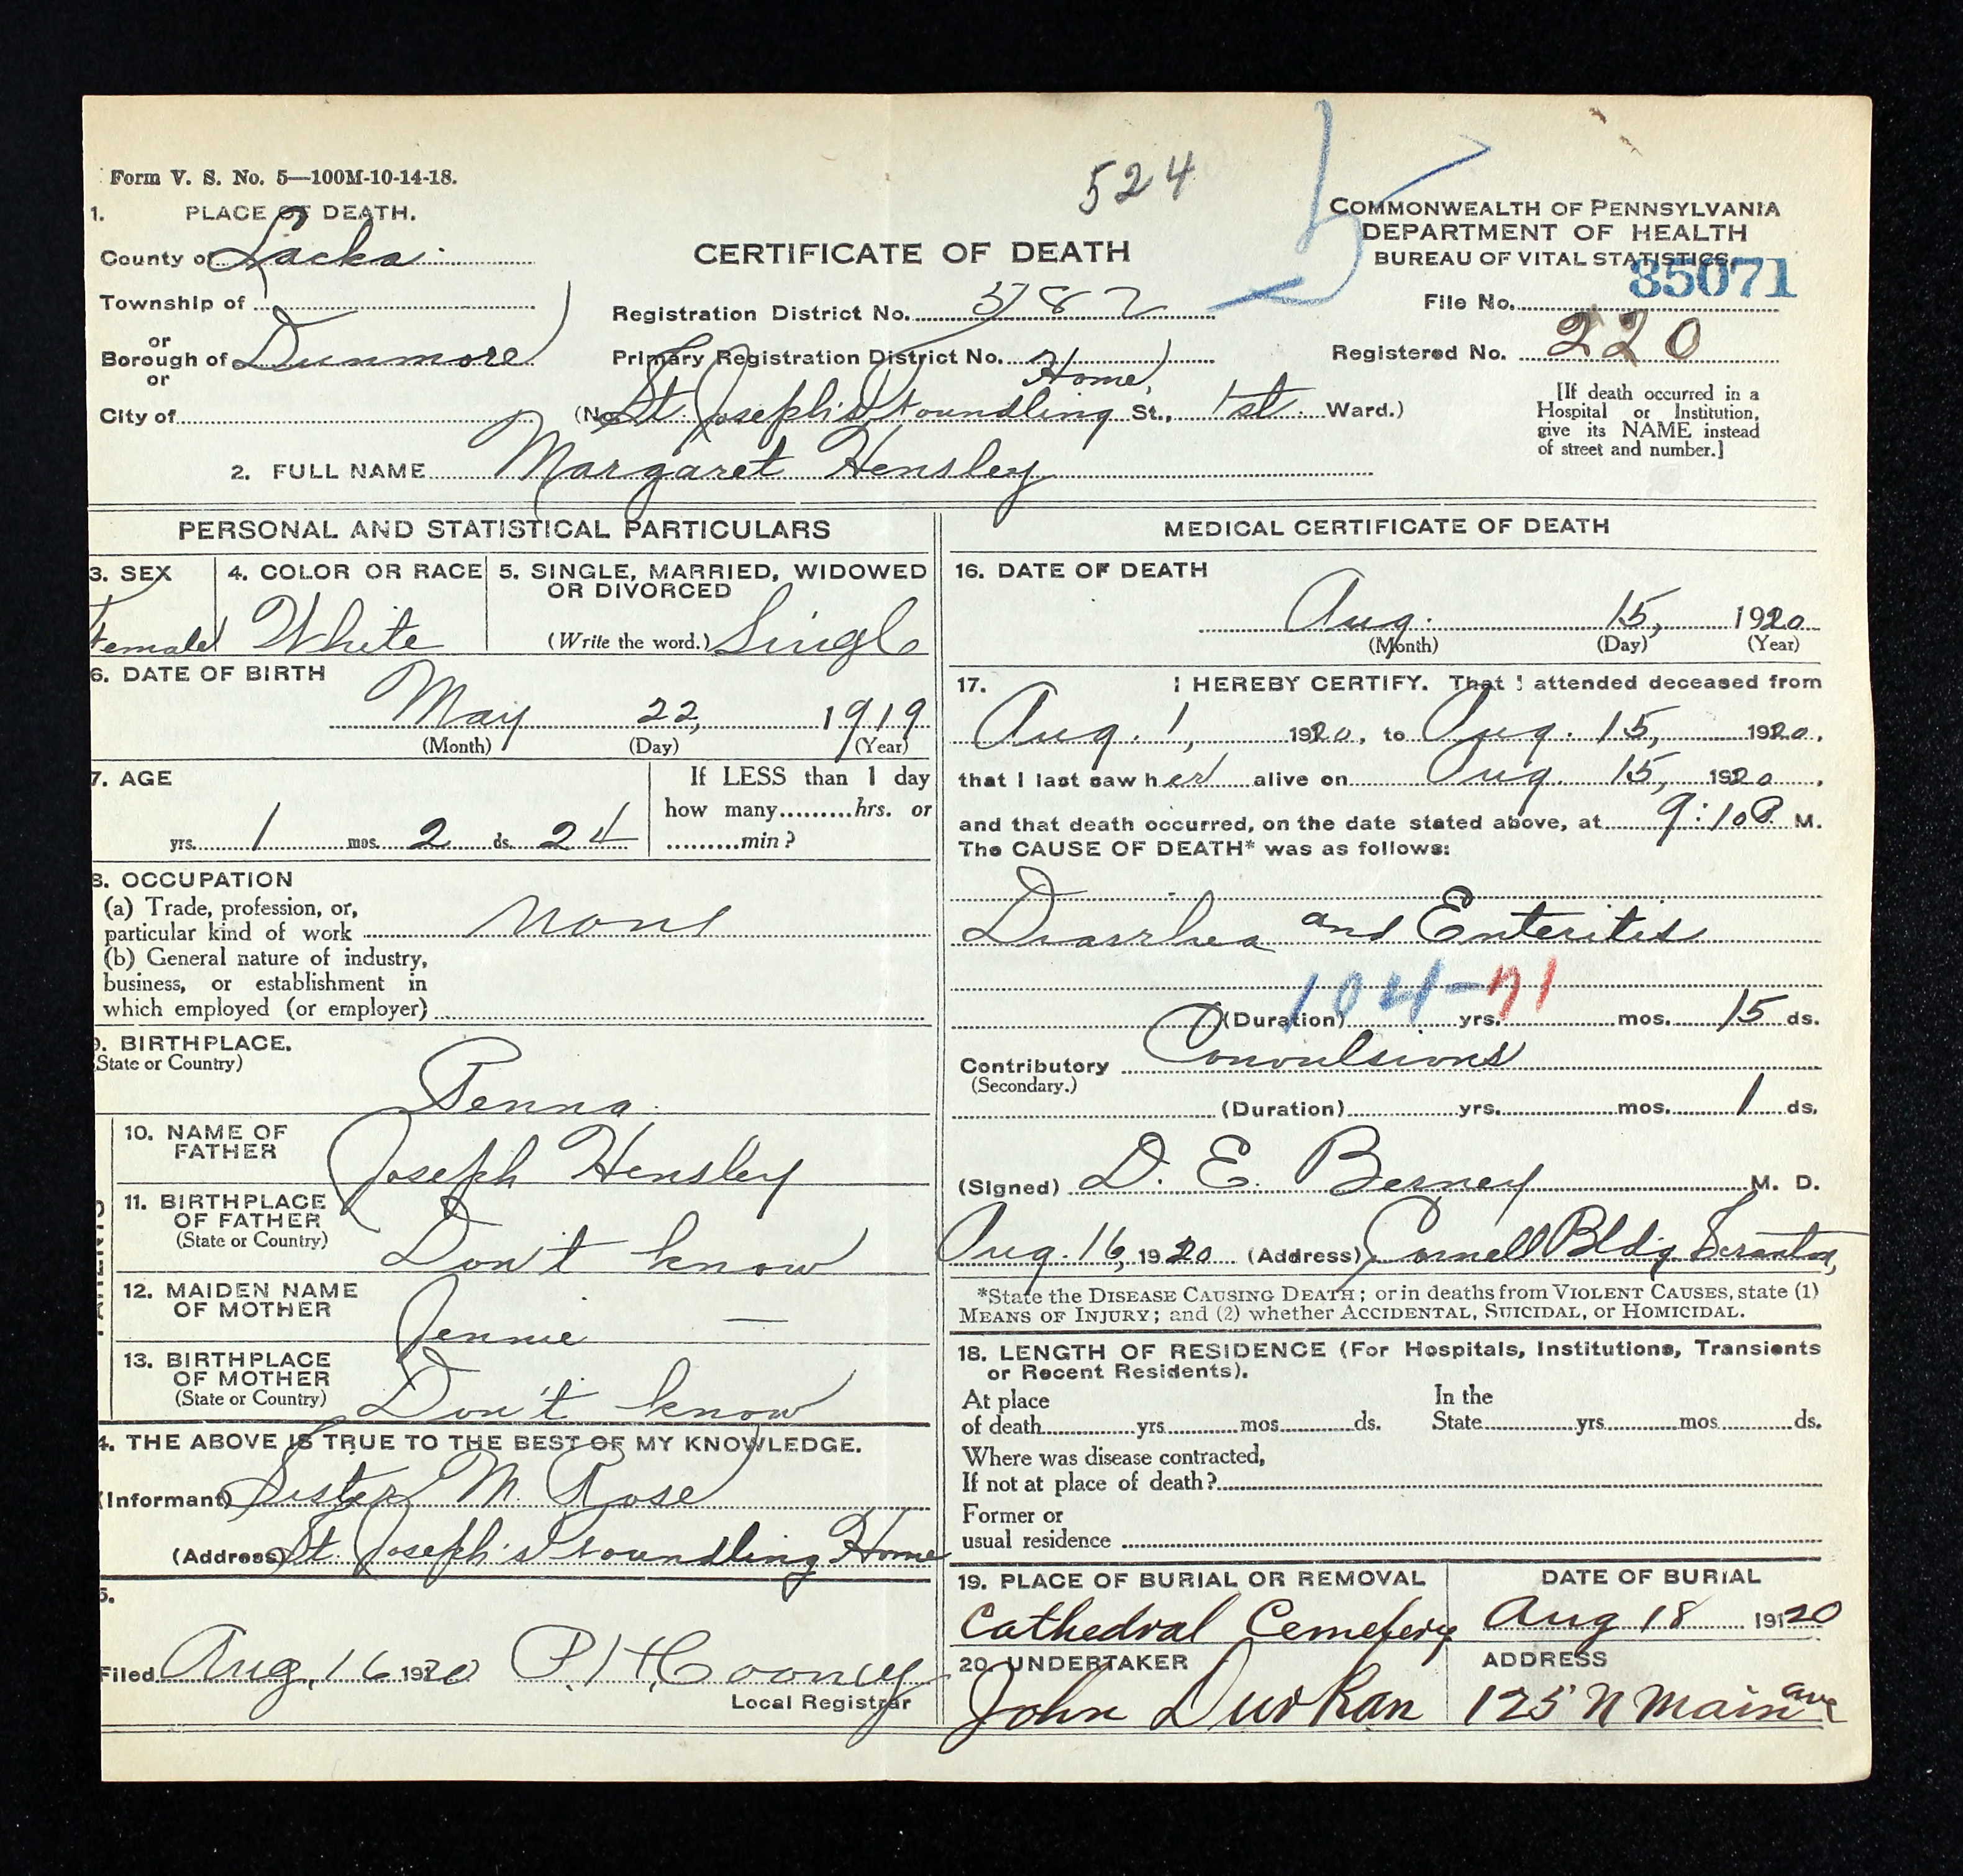 Form V. S. No. 5—100M-10-14-18.
524
1. PLACE OF DEATH.
County of Lacka.
Township of
or
Borough of Dunmore
or
City of
CERTIFICATE OF DEATH
Registration District No. 5782
Primary Registration District No.
(No. St. Joseph's Foundling Home, St., 1st. Ward.)
COMMONWEALTH OF PENNSYLVANIA
DEPARTMENT OF HEALTH
BUREAU OF VITAL STATISTICS
File No. 85071
Registered No. 220
[If death occurred in a
Hospital or Institution,
give its NAME instead
of street and number.]
2. FULL NAME Margaret Hensley
PERSONAL AND STATISTICAL PARTICULARS
3. SEX
Female
4. COLOR OR RACE
White
5. SINGLE, MARRIED, WIDOWED
OR DIVORCED
(Write the word.) Single
6. DATE OF BIRTH
May 22, 1919
(Month) (Day) (Year)
7. AGE
yrs. 1 mos. 2 ds. 24
If LESS than 1 day
how many.........hrs. or
.........min?
8. OCCUPATION
(a) Trade, profession, or,
particular kind of work none
(b) General nature of industry,
business, or establishment in
which employed (or employer)
9. BIRTHPLACE.
(State or Country)
Penna.
PARENTS
10. NAME OF
FATHER
Joseph Hensley
11. BIRTHPLACE
OF FATHER
(State or Country)
Don't know
12. MAIDEN NAME
OF MOTHER
Jennie —
13. BIRTHPLACE
OF MOTHER
(State or Country)
Don't know
4. THE ABOVE IS TRUE TO THE BEST OF MY KNOWLEDGE.
(Informant) Sister M. Rose
(Address) St. Joseph's Foundling Home
5.
Filed Aug, 16 1920 P. H. Cooney
Local Registrar
MEDICAL CERTIFICATE OF DEATH
16. DATE OF DEATH
Aug. 15, 1920
(Month) (Day) (Year)
17. I HEREBY CERTIFY. That I attended deceased from
Aug. 1, 1920, to Aug. 15, 1920,
that I last saw her alive on Aug. 15, 1920.
and that death occurred, on the date stated above, at 9:10 P. M.
The CAUSE OF DEATH* was as follows:
Diarrhea and Enteritis
104-71
(Duration) yrs. mos. 15 ds.
Contributory Convulsions
(Secondary.)
(Duration) yrs. mos. 1 ds.
(Signed) D. E. Berney M. D.
Aug. 16, 1920 (Address) Connell Bldg Scranton,
*State the DISEASE CAUSING DEATH; or in deaths from VIOLENT CAUSES, state (1)
MEANS OF INJURY; and (2) whether ACCIDENTAL, SUICIDAL, or HOMICIDAL.
18. LENGTH OF RESIDENCE (For Hospitals, Institutions, Transients
or Recent Residents).
At place
of death yrs. mos. ds.
In the
State yrs. mos. ds.
Where was disease contracted,
If not at place of death?
Former or
usual residence
19. PLACE OF BURIAL OR REMOVAL
Cathedral Cemetery
DATE OF BURIAL
Aug 18 1920
20 UNDERTAKER
John Durkan
ADDRESS
125 N Main ave